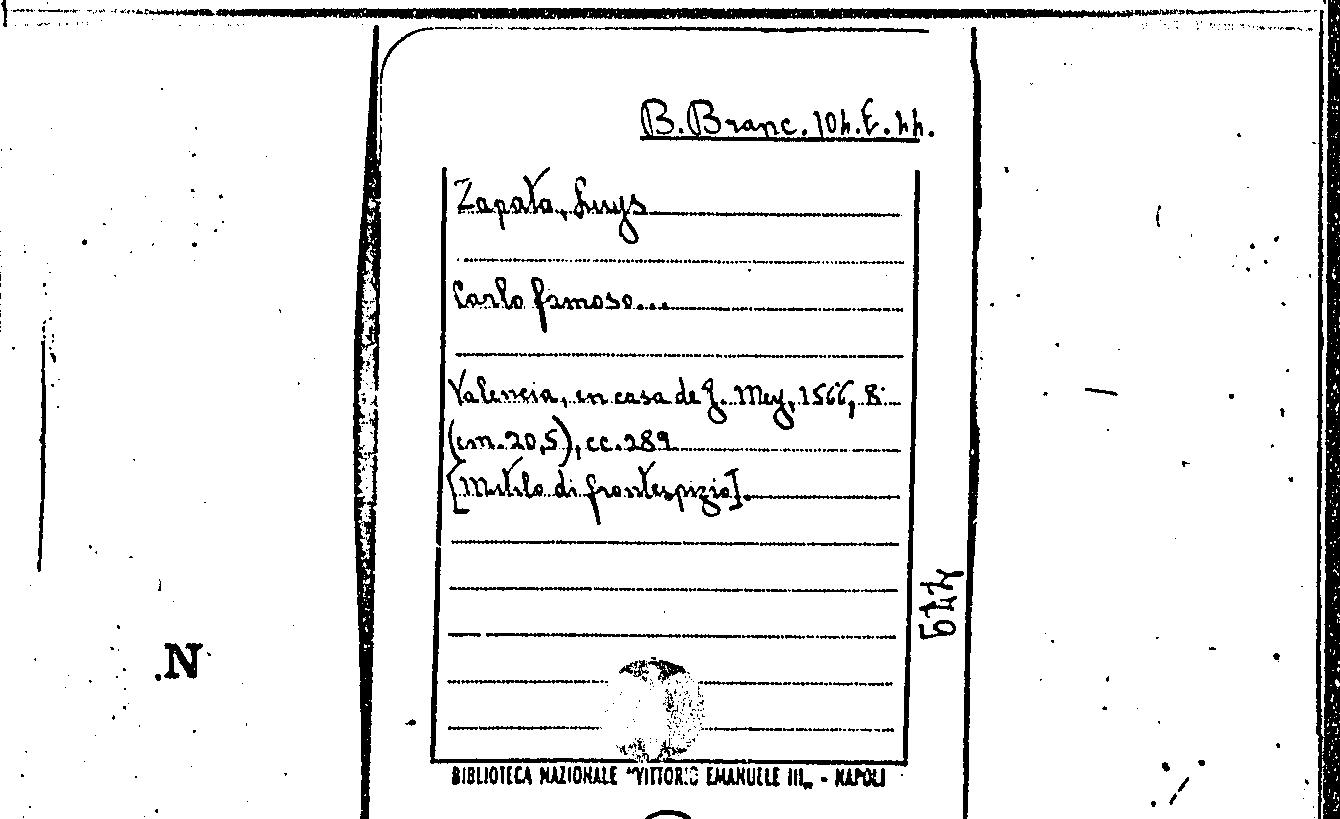 B. Branc. 104. E. 44.
Zapata, Luys
Carlo famoso...
Valencia, en casa de J. Mey, 1566, 8°
(cm. 20,5), cc. 289
[Mutilo di frontespizio].
BIBLIOTECA NAZIONALE "VITTORIO EMANUELE III„ - NAPOLI
.N